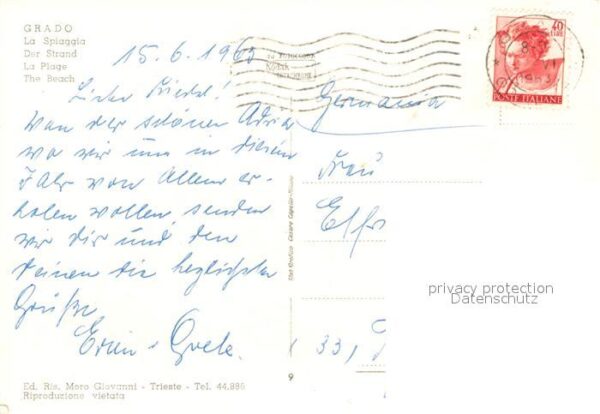 GRADO
La Spiaggia
Der Strand
La Plage
The Beach
15.6.1963
Liebe Friedel!
Von der schönen Adria
wo wir uns in diesem
Jahr von Allem er-
holen wollen, senden
wir dir und den
deinen die herzlichsten
Grüße
Erni + Grete.
Ed. Ris. Moro Giovanni - Trieste - Tel. 44.886
Riproduzione vietata
9
40
LIRE
POSTE ITALIANE
Germania
Frau
Elfr
33,
privacy protection
Datenschutz